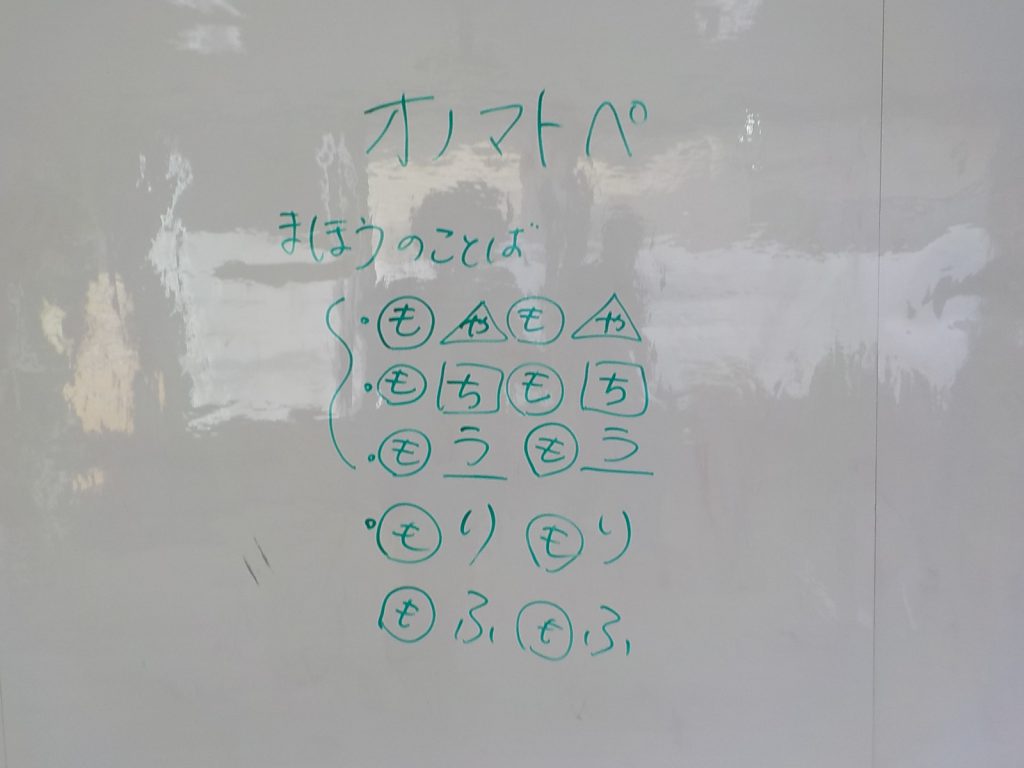 オノマトペ
まほうのことば
・もやもや
・もちもち
・もうもう
・もりもり
もふもふ